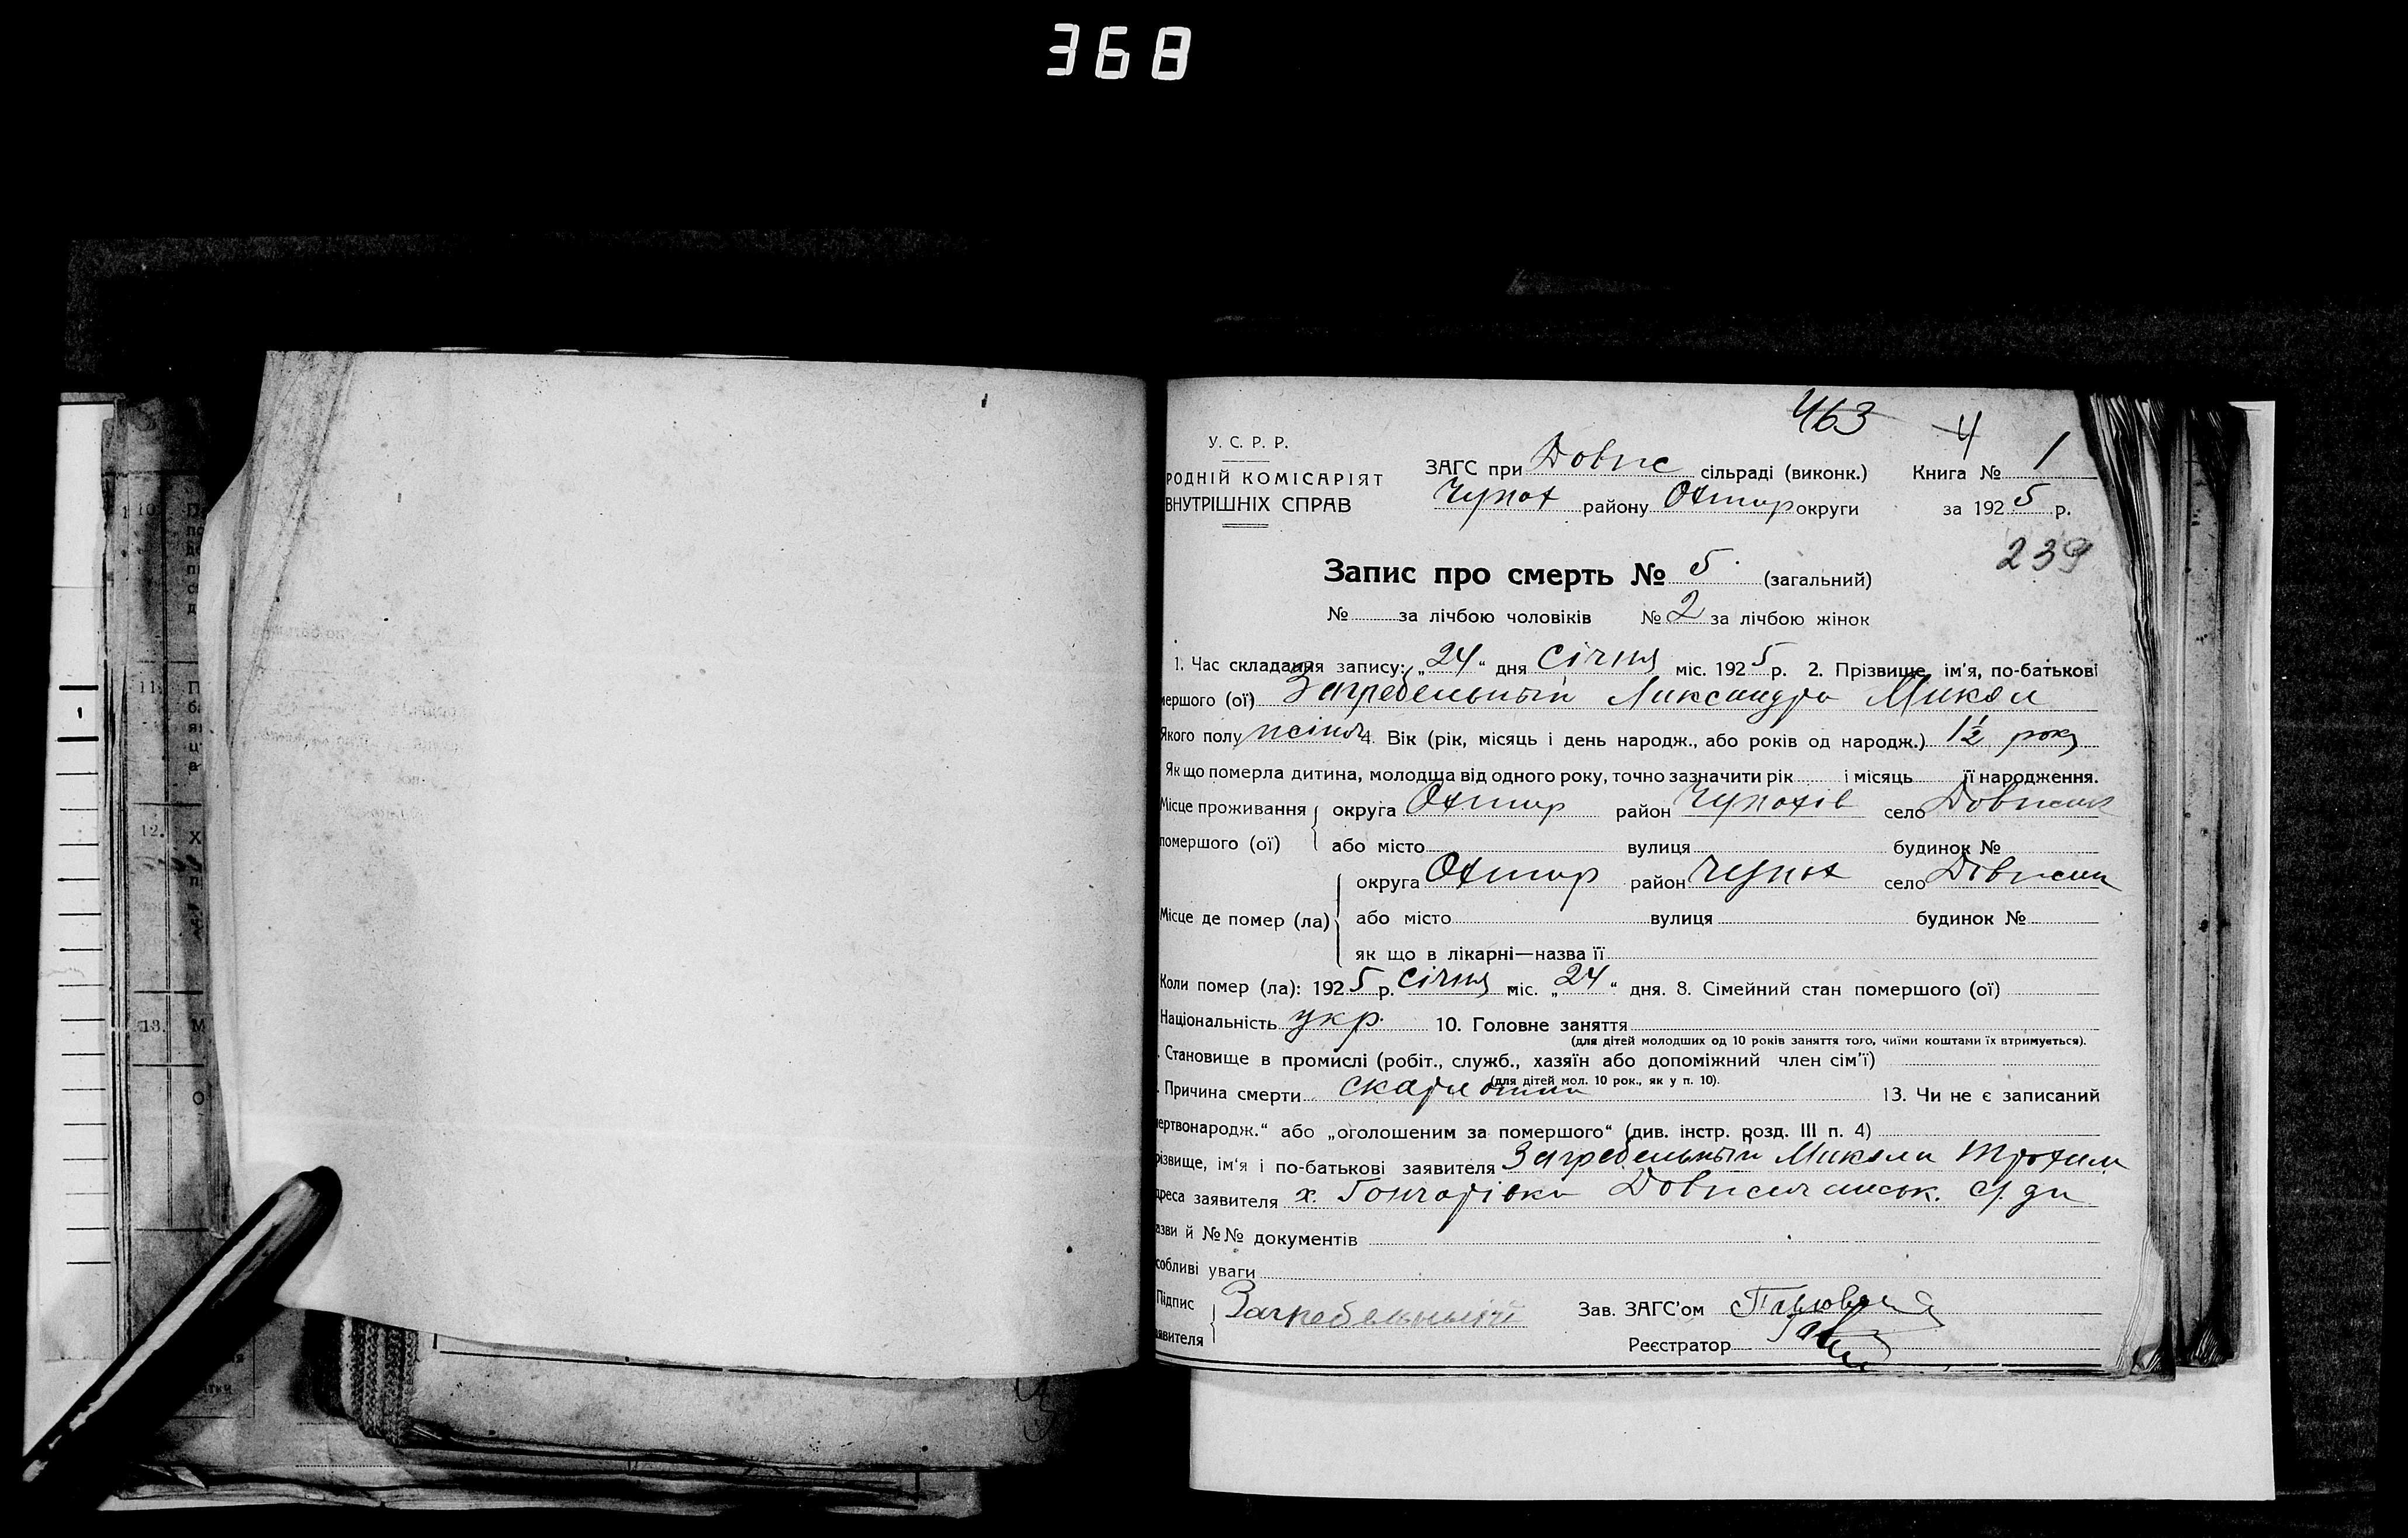 368
463 4
У. С. Р. Р.
РОДНІЙ КОМІСАРІЯТ
ВНУТРІШНІХ СПРАВ
ЗАГС при Довпс сільраді (виконк.) Книга № 1
Чупах району Охтир округи за 1925 р.
239
Запис про смерть № 5. (загальний)
№ за лічбою чоловіків № 2 за лічбою жінок
1. Час складання запису: „24“ дня Січня міс. 1925 р. 2. Прізвище, ім'я, по-батькові
мершого (ої) Загребельный Ликсандра Микол
Якого полу жіноч 4. Вік (рік, місяць і день народж., або років од народж.) 1½ року
Як що померла дитина, молодша від одного року, точно зазначити рік і місяць її народження.
Місце проживання округа Охтир район Чупахів село
помершого (ої) або місто вулиця будинок №
округа Охтир район Чупах село
Місце де помер (ла) або місто вулиця будинок №
як що в лікарні—назва її
Коли помер (ла): 1925 р. Січня міс. „24“ дня. 8. Сімейний стан помершого (ої)
Національність укр. 10. Головне заняття
(для дітей молодших од 10 років заняття того, чиїми коштами їх втримується).
. Становище в промислі (робіт., служб., хазяїн або допоміжний член сім'ї)
(для дітей мол. 10 рок., як у п. 10).
. Причина смерти скарлотина 13. Чи не є записаний
ертвонародж.“ або „оголошеним за помершого“ (див. інстр. розд. III п. 4)
різвище, ім'я і по-батькові заявителя Загребельный Микола Трохим
дреса заявителя х. Гончарівка с/ди
азви й №№ документів
собливі уваги
Підпис Загребельный Зав. ЗАГС'ом
аявителя Реєстратор